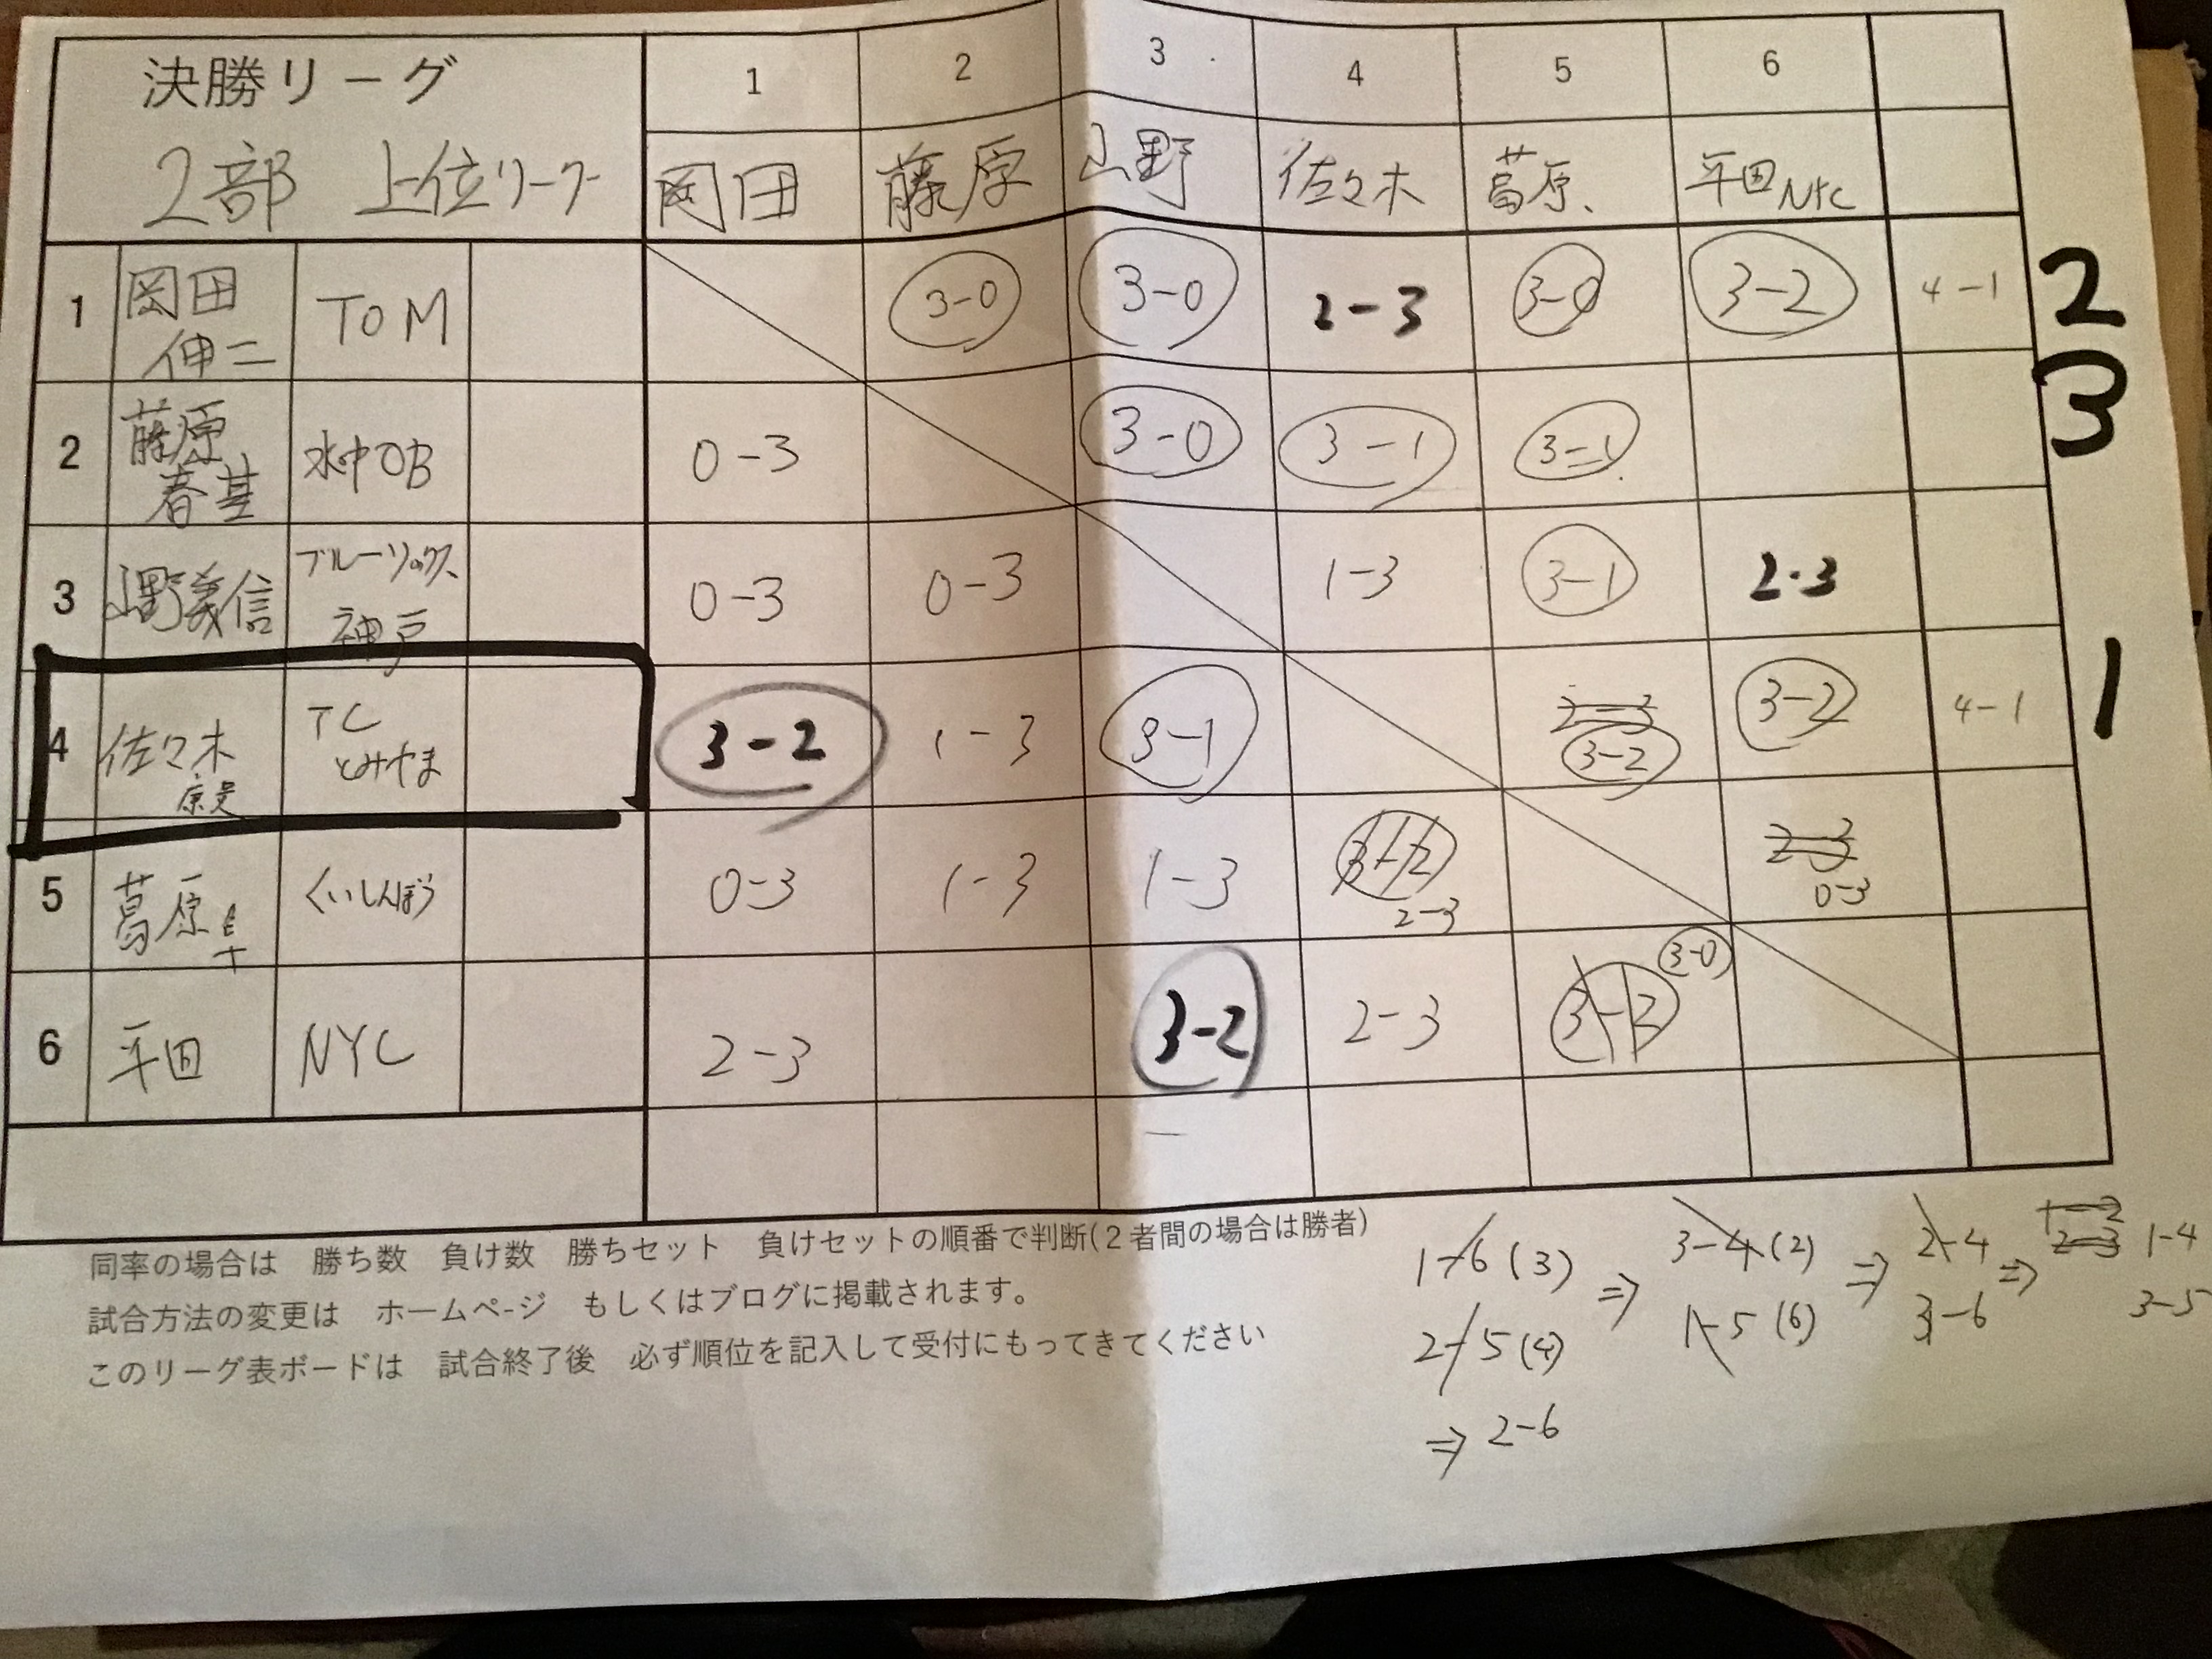 決勝リーグ 1 2 3 4 5 6
2部 上位リーグ 岡田 藤原 山野 佐々木 葛原、 平田NYC
1 岡田伸二 TOM 3-0 3-0 2-3 3-0 3-2 4-1 2
2 藤原春基 水中OB 0-3 3-0 3-1 3-1 3
3 山野義信 ブルーソックス、神戸 0-3 0-3 1-3 3-1 2-3
4 佐々木 TCとみやま 3-2 1-3 3-1 2-3 3-2 3-2 4-1 1
5 葛原 くいしんぼう 0-3 1-3 1-3 3-2 2-3 2-3 0-3
6 平田 NYC 2-3 3-2 2-3 3-2 3-0
同率の場合は 勝ち数 負け数 勝ちセット 負けセットの順番で判断(2者間の場合は勝者)
試合方法の変更は ホームペ-ジ もしくはブログに掲載されます。
このリーグ表ボードは 試合終了後 必ず順位を記入して受付にもってきてください
1-6(3) ⇒ 3-4(2) ⇒ 2-4 ⇒ 1-2 2-3 1-4
2-5(4) 1-5(6) 3-6 3-5
⇒ 2-6